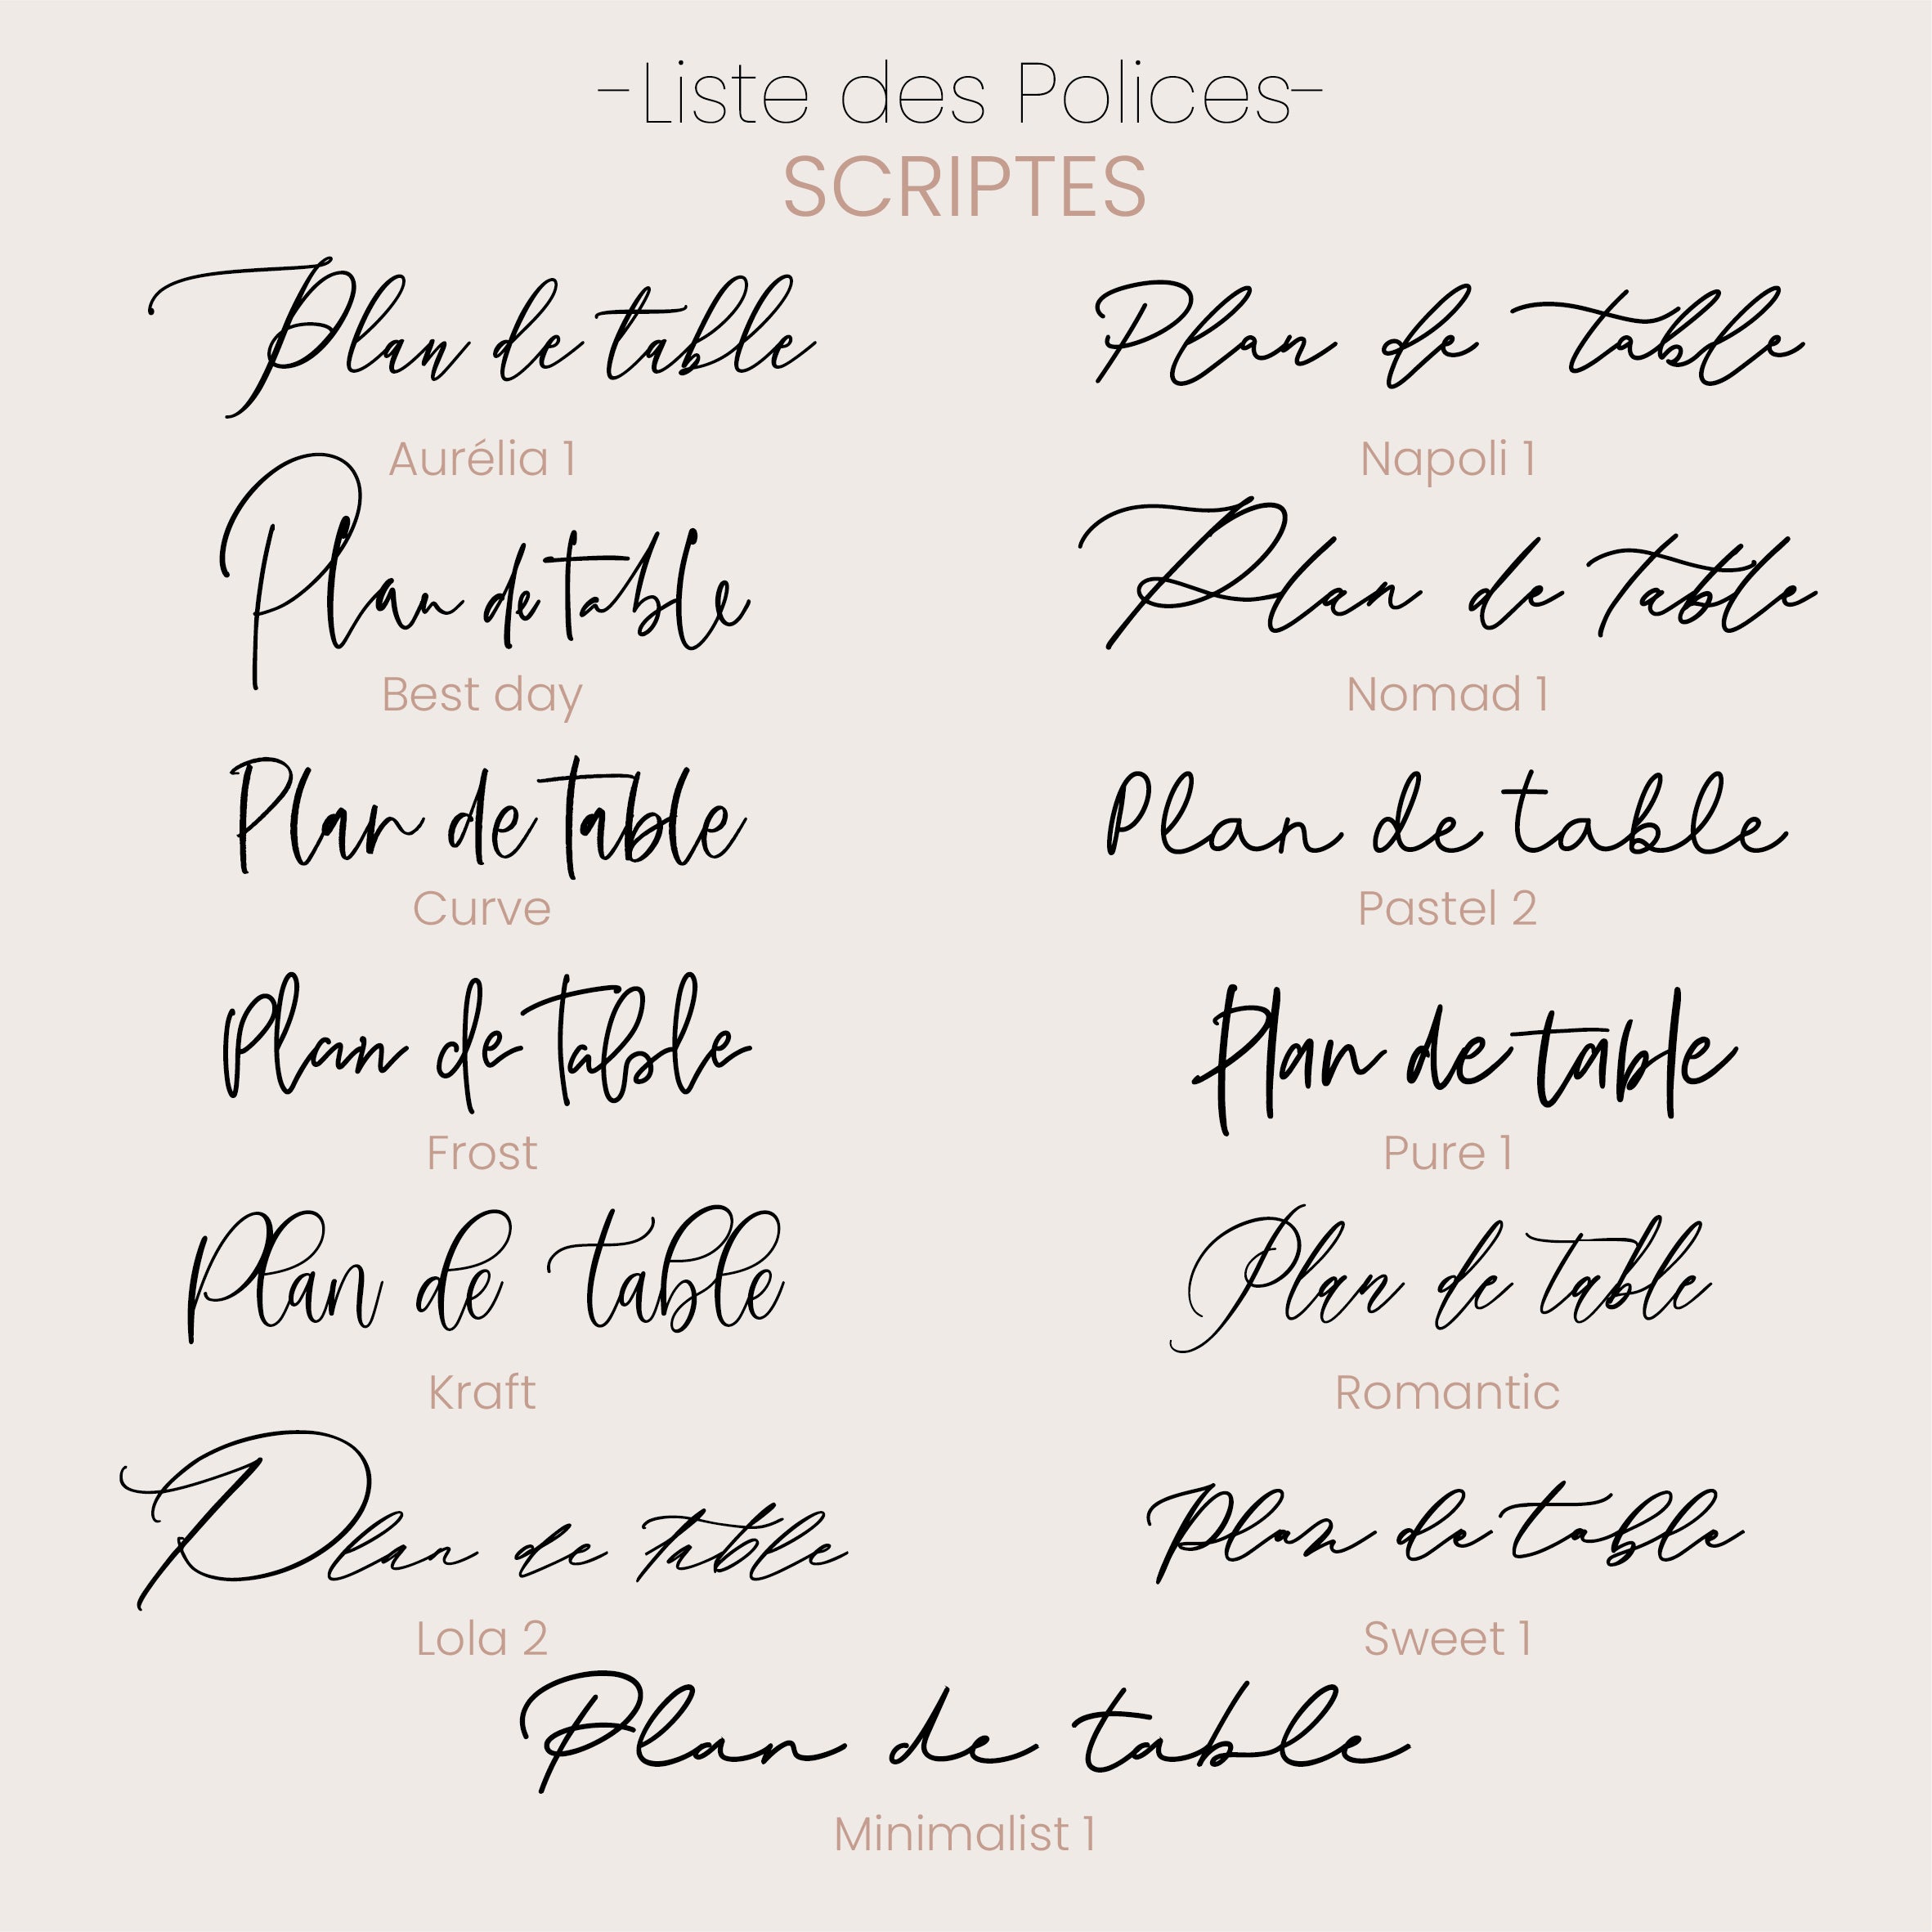 -Liste des Polices-
SCRIPTES
Plan de table
Plan de table
Aurélia 1
Napoli 1
Plan de table
Plan de table
Best day
Nomad 1
Plan de table
Plan de table
Curve
Pastel 2
Plan de table
Plan de table
Frost
Pure 1
Plan de table
Plan de table
Kraft
Romantic
Plan de table
Plan de table
Lola 2
Sweet 1
Plan de table
Minimalist 1